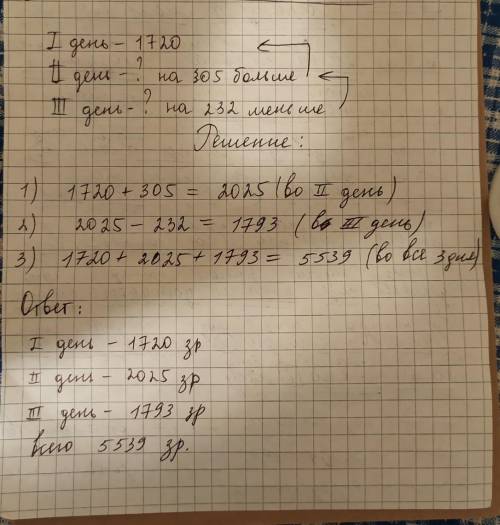 I день – 1720
II день – ? на 305 больше
III день – ? на 232 меньше
Решение:
1) 1720 + 305 = 2025 (во II день)
2) 2025 – 232 = 1793 (в III день)
3) 1720 + 2025 + 1793 = 5539 (во все 3 дня)
Ответ:
I день – 1720 зр
II день – 2025 зр
III день – 1793 зр
всего 5539 зр.